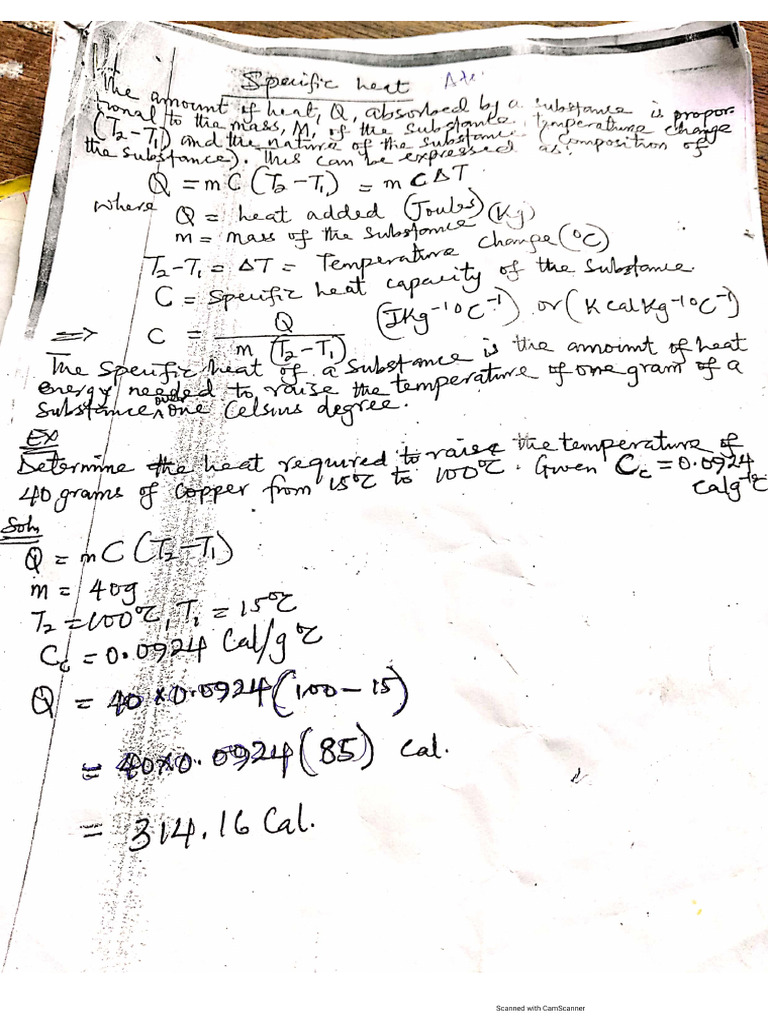 Specific heat
The amount of heat, Q, absorbed by a substance is propor
tional to the mass, M, of the substance, temperature change
(T₂-T₁) and the nature of the substance (composition of
the substance). This can be expressed as:
Q = mC(T₂-T₁) = mCΔT.
where Q = heat added (Joules)
m = mass of the substance (Kg)
T₂-T₁ = ΔT = Temperature change (°C)
C = Specific heat capacity of the substance.
(JKg⁻¹°C⁻¹) or (KcalKg⁻¹°C⁻¹)
⇒ C = Q / m(T₂-T₁)
The specific heat of a substance is the amount of heat
energy needed to raise the temperature of one gram of a
substance over one Celsius degree.
EX
Determine the heat required to raise the temperature of
40 grams of copper from 15°C to 100°C. Given Cc = 0.0924
Calg⁻¹°C
Soln
Q = mC(T₂-T₁)
m = 40g
T₂ = 100°C, T₁ = 15°C
Cc = 0.0924 Cal/g°C
Q = 40×0.0924(100-15)
= 40×0.0924(85) Cal.
= 314.16 Cal.
Scanned with CamScanner